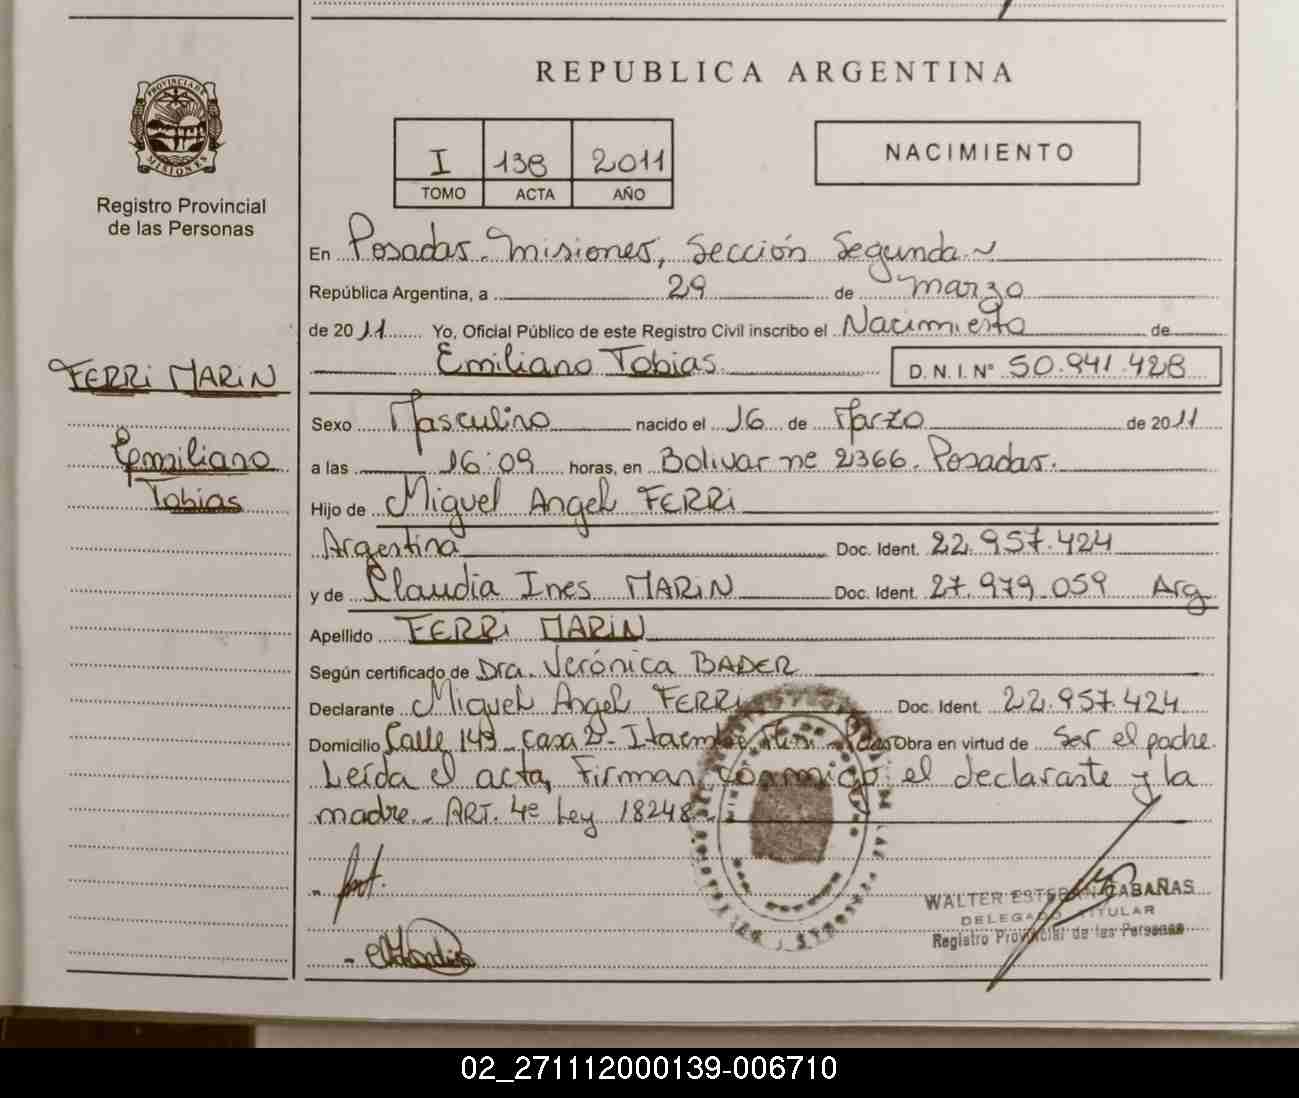 REPUBLICA ARGENTINA
PROVINCIA DE MISIONES
Registro Provincial
de las Personas
I 138 2011
TOMO ACTA AÑO
NACIMIENTO
En Posadas. Misiones, Sección Segunda.~
República Argentina, a 29 de marzo
de 2011 Yo, Oficial Público de este Registro Civil inscribo el Nacimiento de
Emiliano Tobias. D. N. I. Nº 50.941.428
FERRi MARiN
Emiliano
Tobias
Sexo Masculino nacido el 16 de Marzo de 2011
a las 16:09 horas, en Bolivar nº 2366. Posadas.
Hijo de Miguel Angel FERRi
Argentina Doc. Ident. 22.957.424
y de Claudia Ines MARiN Doc. Ident. 27.979.059 Arg
Apellido FERRi MARiN
Según certificado de Dra. Verónica BADER
Declarante Miguel Angel FERRi Doc. Ident. 22.957.424
Domicilio Calle 149 casa 2- Itaembé Obra en virtud de Ser el padre.
Leída el acta, Firman conmigo el declarante y la
madre.- ART. 4º Ley 18248-
WALTER ESTEBAN CABAÑAS
DELEGADO TITULAR
Registro Provincial de las Personas
02_271112000139-006710